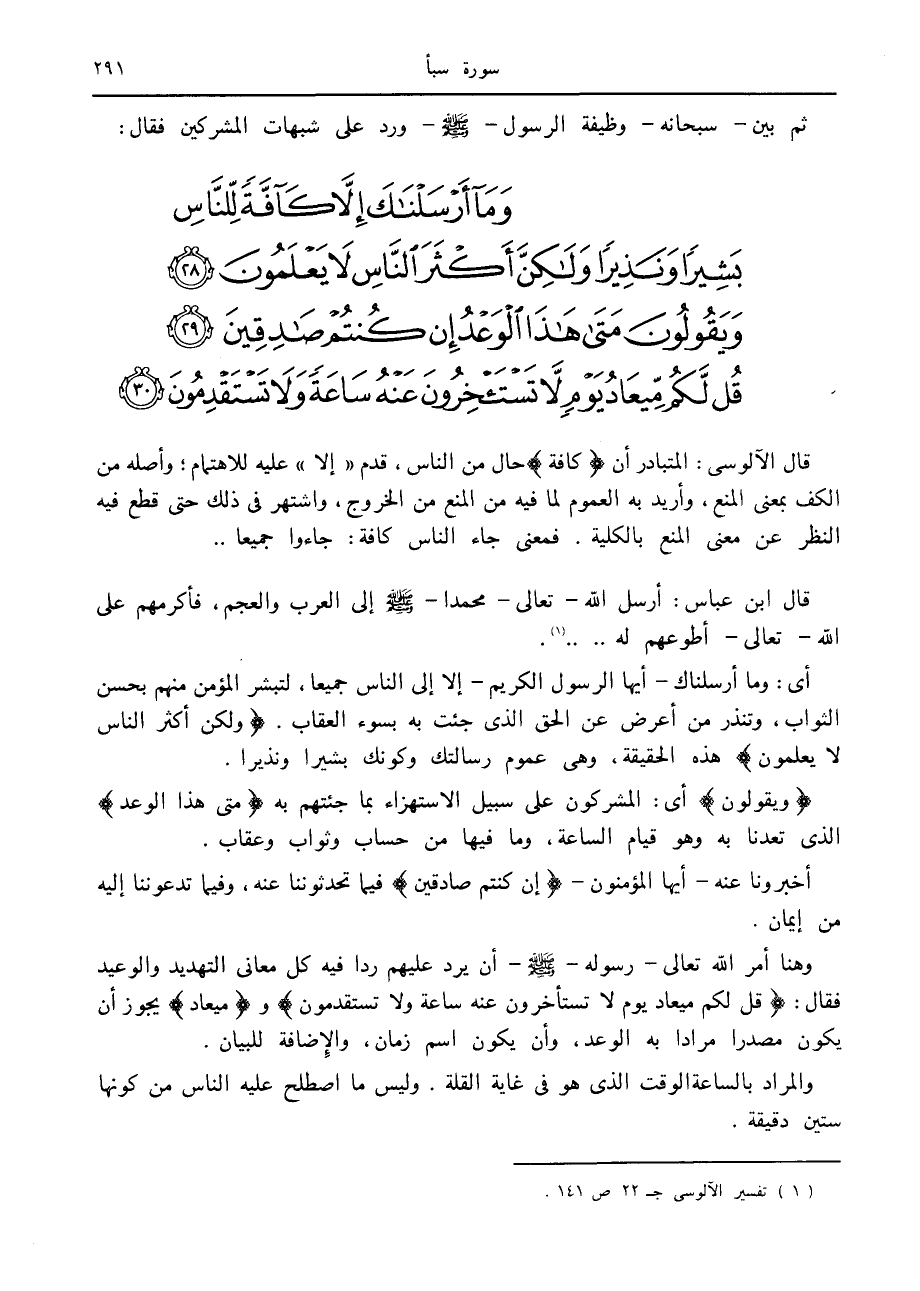 سورة سبأ
٢٩١
ثم بين – سبحانه – وظيفة الرسول – ﷺ – ورد على شبهات المشركين فقال :
وَمَآ أَرْسَلْنَٰكَ إِلَّا كَآفَّةً لِّلنَّاسِ
بَشِيرًا وَنَذِيرًا وَلَٰكِنَّ أَكْثَرَ ٱلنَّاسِ لَا يَعْلَمُونَ ﴿٢٨﴾
وَيَقُولُونَ مَتَىٰ هَٰذَا ٱلْوَعْدُ إِن كُنتُمْ صَٰدِقِينَ ﴿٢٩﴾
قُل لَّكُم مِّيعَادُ يَوْمٍ لَّا تَسْتَـْٔخِرُونَ عَنْهُ سَاعَةً وَلَا تَسْتَقْدِمُونَ ﴿٣٠﴾
قال الآلوسى : المتبادر أن ﴿ كافة ﴾ حال من الناس ، قدم « إلا » عليه للاهتمام ؛ وأصله من
الكف بمعنى المنع ، وأريد به العموم لما فيه من المنع من الخروج ، واشتهر فى ذلك حتى قطع فيه
النظر عن معنى المنع بالكلية . فمعنى جاء الناس كافة : جاءوا جميعا ..
قال ابن عباس : أرسل الله – تعالى – محمدا – ﷺ إلى العرب والعجم ، فأكرمهم على
الله – تعالى – أطوعهم له .. ..(١) .
أى : وما أرسلناك – أيها الرسول الكريم – إلا إلى الناس جميعا ، لتبشر المؤمن منهم بحسن
الثواب ، وتنذر من أعرض عن الحق الذى جئت به بسوء العقاب . ﴿ ولكن أكثر الناس
لا يعلمون ﴾ هذه الحقيقة ، وهى عموم رسالتك وكونك بشيرا ونذيرا .
﴿ ويقولون ﴾ أى : المشركون على سبيل الاستهزاء بما جئتهم به ﴿ متى هذا الوعد ﴾
الذى تعدنا به وهو قيام الساعة ، وما فيها من حساب وثواب وعقاب .
أخبرونا عنه – أيها المؤمنون – ﴿ إن كنتم صادقين ﴾ فيما تحدثوننا عنه ، وفيما تدعوننا إليه
من إيمان .
وهنا أمر الله تعالى – رسوله – ﷺ – أن يرد عليهم ردا فيه كل معانى التهديد والوعيد
فقال : ﴿ قل لكم ميعاد يوم لا تستأخرون عنه ساعة ولا تستقدمون ﴾ و ﴿ ميعاد ﴾ يجوز أن
يكون مصدرا مرادا به الوعد ، وأن يكون اسم زمان ، والإضافة للبيان .
والمراد بالساعة الوقت الذى هو فى غاية القلة . وليس ما اصطلح عليه الناس من كونها
ستين دقيقة .
( ١ ) تفسير الآلوسى جـ ٢٢ ص ١٤١ .